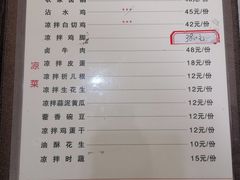 48元/份
沾水鸡 45元/份
凉拌白切鸡 42元/份
凉拌鸡脚
卤牛肉 48元/份
凉菜
凉拌皮蛋 18元/份
凉拌折儿根 12元/份
凉拌花生 12元/份
凉拌蒜泥黄瓜 12元/份
藿香豌豆 12元/份
凉拌鸡蛋干 12元/份
油酥花生 10元/份
凉拌时蔬 15元/份